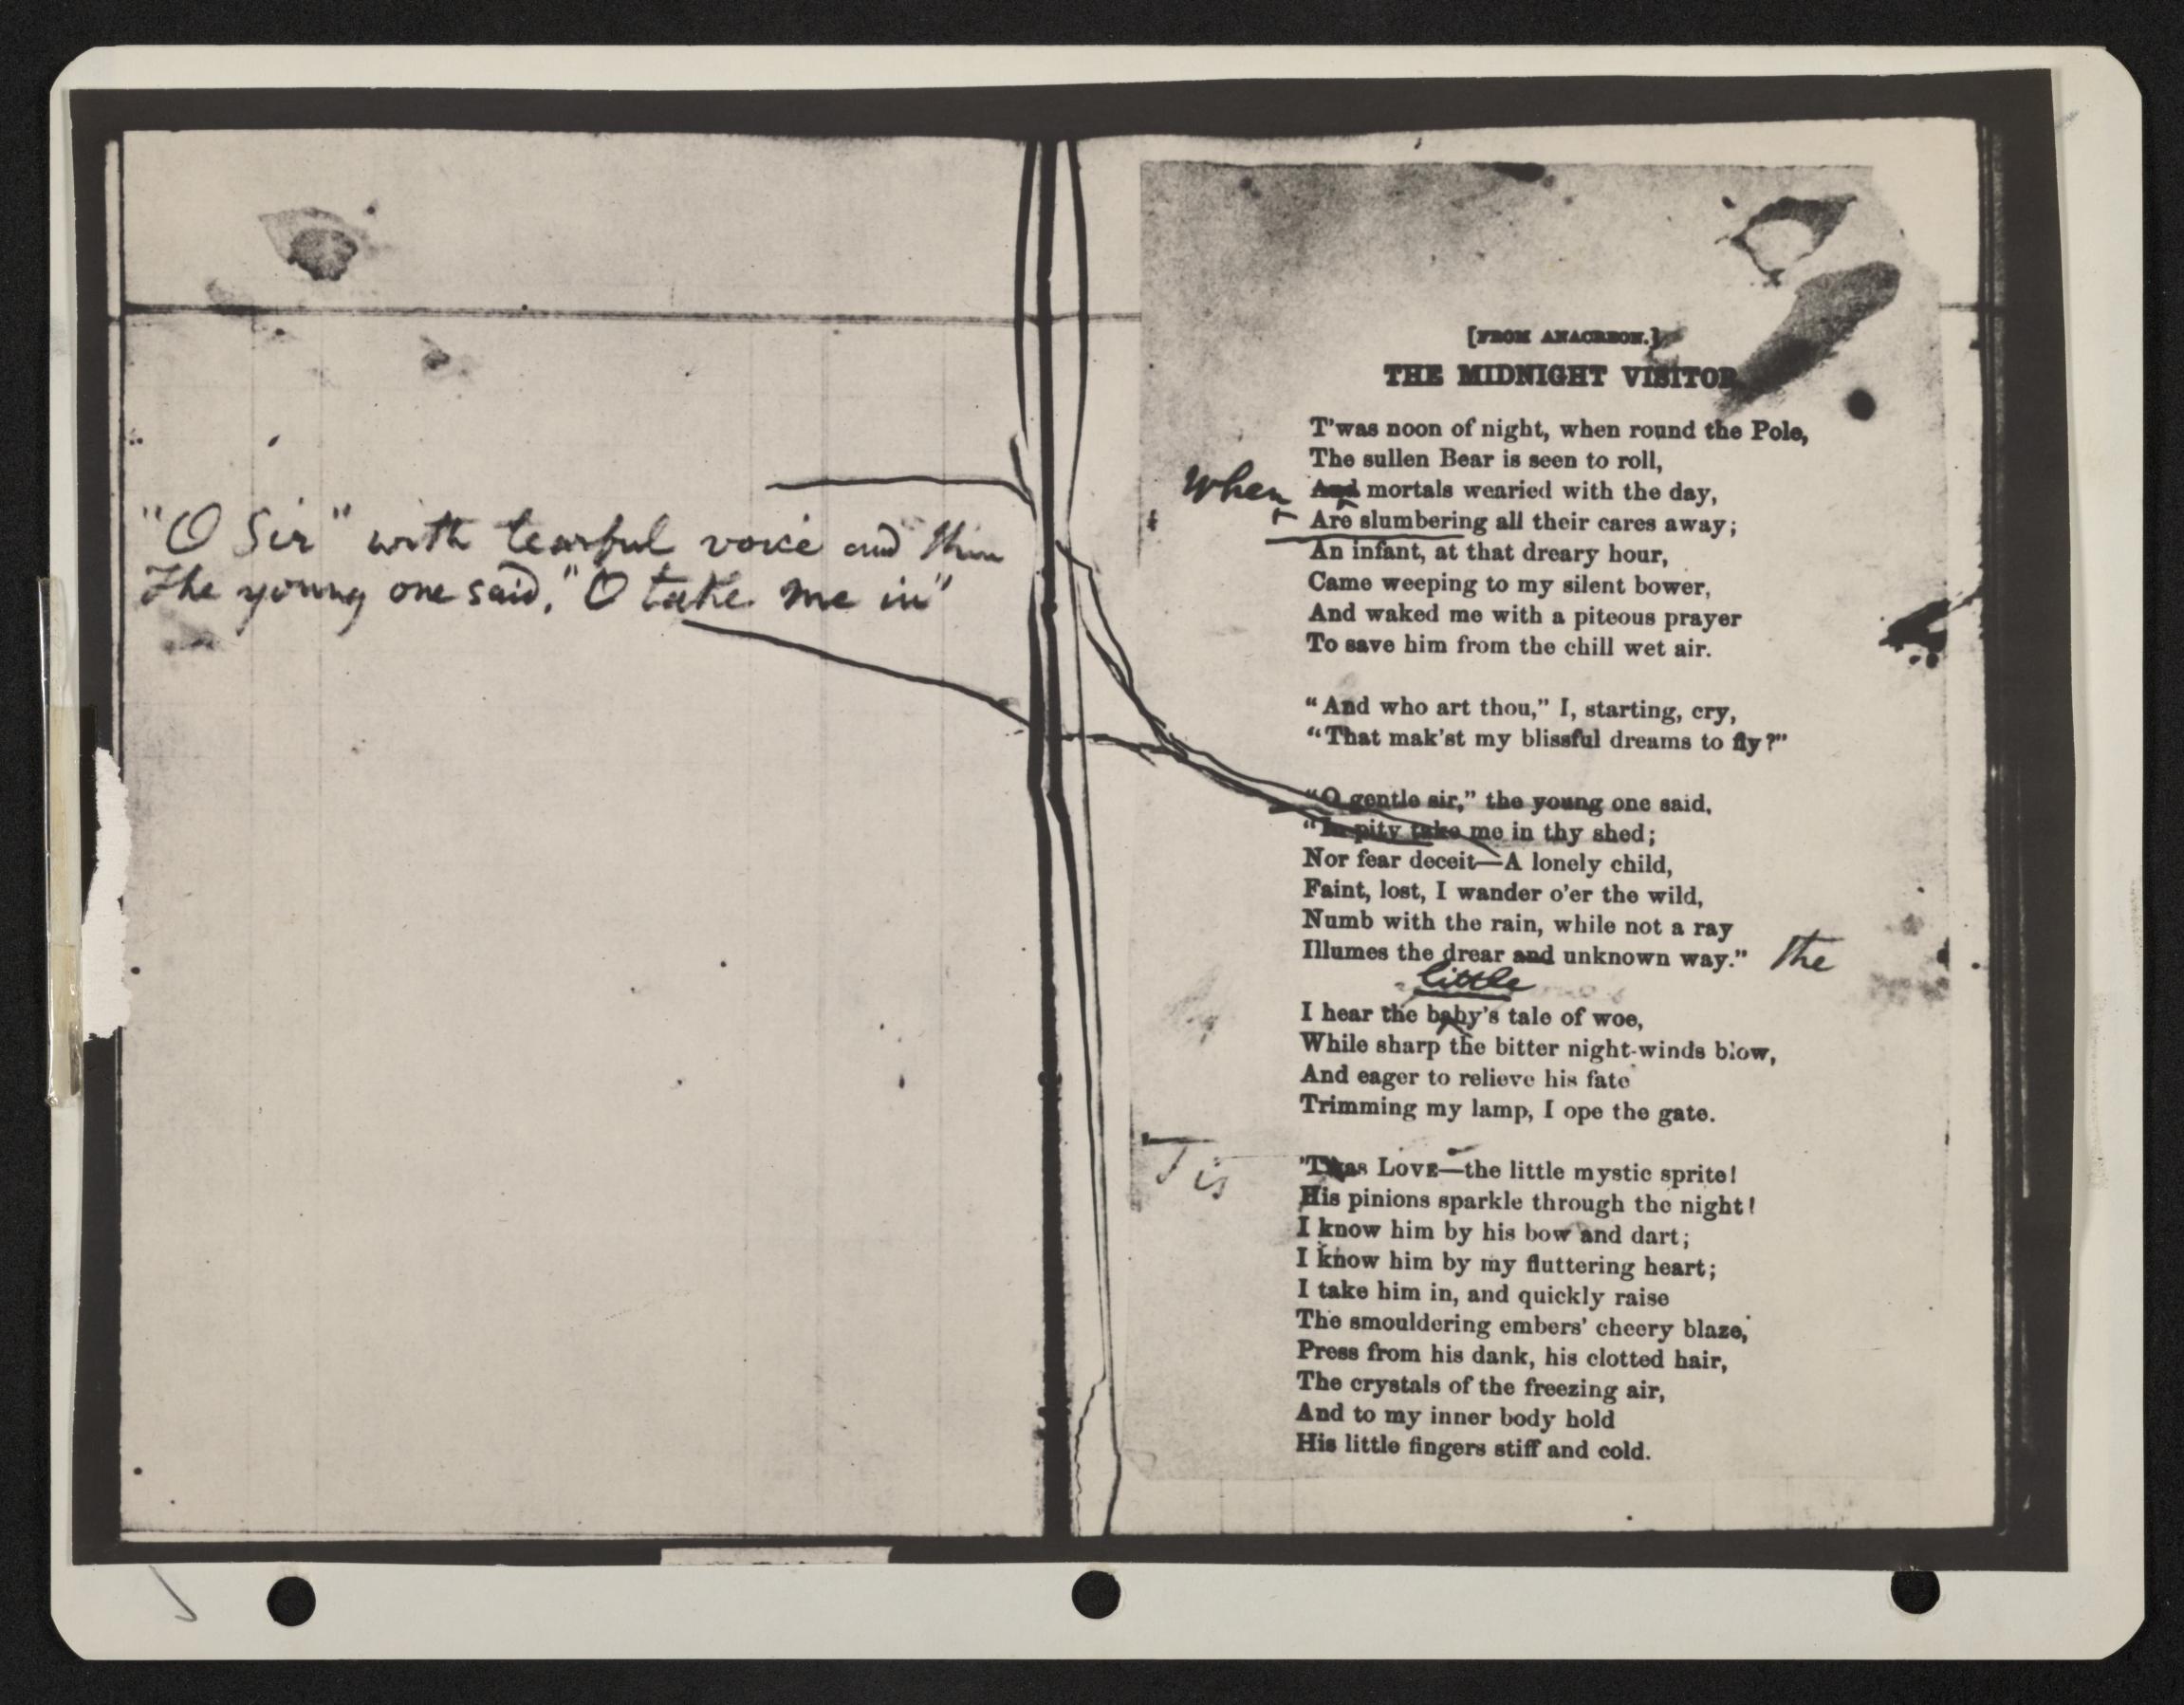 "O Sir" with tearful voice and thin
The young one said, "O take me in"
[FROM ANACREON.]
THE MIDNIGHT VISITOR
T'was noon of night, when round the Pole,
The sullen Bear is seen to roll,
When And mortals wearied with the day,
Are slumbering all their cares away;
An infant, at that dreary hour,
Came weeping to my silent bower,
And waked me with a piteous prayer
To save him from the chill wet air.
"And who art thou," I, starting, cry,
"That mak'st my blissful dreams to fly?"
"O gentle sir," the young one said,
"In pity take me in thy shed;
Nor fear deceit—A lonely child,
Faint, lost, I wander o'er the wild,
Numb with the rain, while not a ray
Illumes the drear and unknown way." the
little
I hear the baby's tale of woe,
While sharp the bitter night-winds blow,
And eager to relieve his fate
Trimming my lamp, I ope the gate.
Tis 'Twas LOVE—the little mystic sprite!
His pinions sparkle through the night!
I know him by his bow and dart;
I know him by my fluttering heart;
I take him in, and quickly raise
The smouldering embers' cheery blaze,
Press from his dank, his clotted hair,
The crystals of the freezing air,
And to my inner body hold
His little fingers stiff and cold.